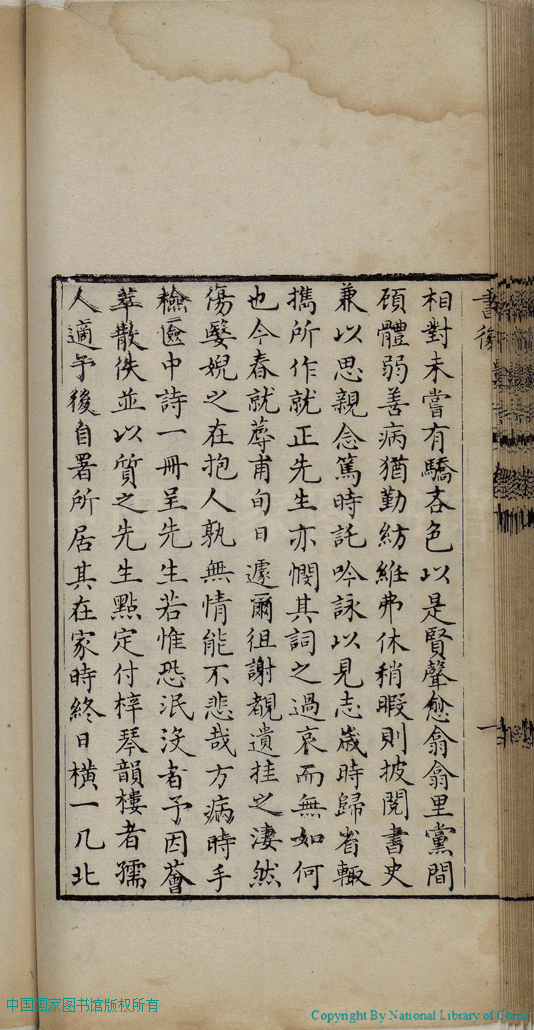 書後
相對未嘗有驕吝色以是賢聲愈翕翕里黨間
頎體弱善病猶勤紡維弗休稍暇則披閱書史
兼以思親念篤時託吟詠以見志歲時歸省輒
攜所作就正先生亦憫其詞之過哀而無如何
也今春就蓐甫旬日遽爾徂謝覩遺挂之淒然
傷嫛婗之在抱人孰無情能不悲哉方病時手
檢奩中詩一冊呈先生若惟恐泯沒者予因薈
萃散佚並以質之先生點定付梓琴韻樓者孺
人適予後自署所居其在家時終日橫一几北
中国国家图书馆版权所有
Copyright By National Library of China